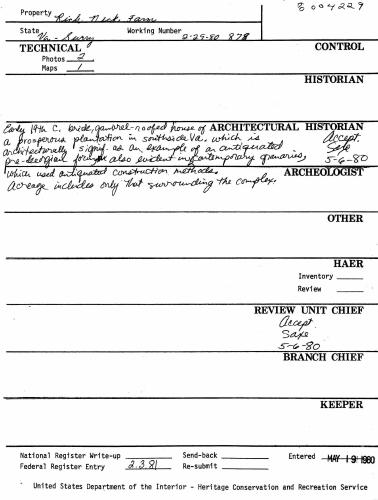 Property Rich Neck Farm
8004229
State Va - Surry Working Number 2-29-80 878
TECHNICAL
Photos 2
Maps 1
CONTROL
HISTORIAN
Early 19th C. brick, gambrel-roofed house of ARCHITECTURAL HISTORIAN
a prosperous plantation in southside Va. which is
Accept
architecturally signif. as an example of an antiquated
Saxe
pre-Georgian form also evident in contemporary granaries,
5-6-80
which used antiquated construction methods. ARCHEOLOGIST
Acreage includes only that surrounding the complex.
OTHER
HAER
Inventory
Review
REVIEW UNIT CHIEF
Accept
Saxe
5-6-80
BRANCH CHIEF
KEEPER
National Register Write-up Send-back Entered MAY 19 1980
Federal Register Entry 2.3.81 Re-submit
United States Department of the Interior - Heritage Conservation and Recreation Service